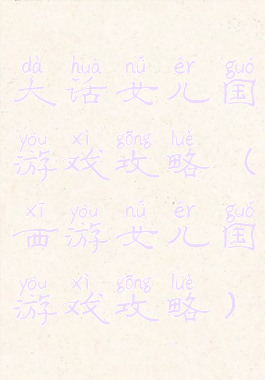 dà huà nǚ ér guó
大话女儿国
yóu xì gōng lüè
游戏攻略（
xī yóu nǚ ér guó
西游女儿国
yóu xì gōng lüè
游戏攻略）